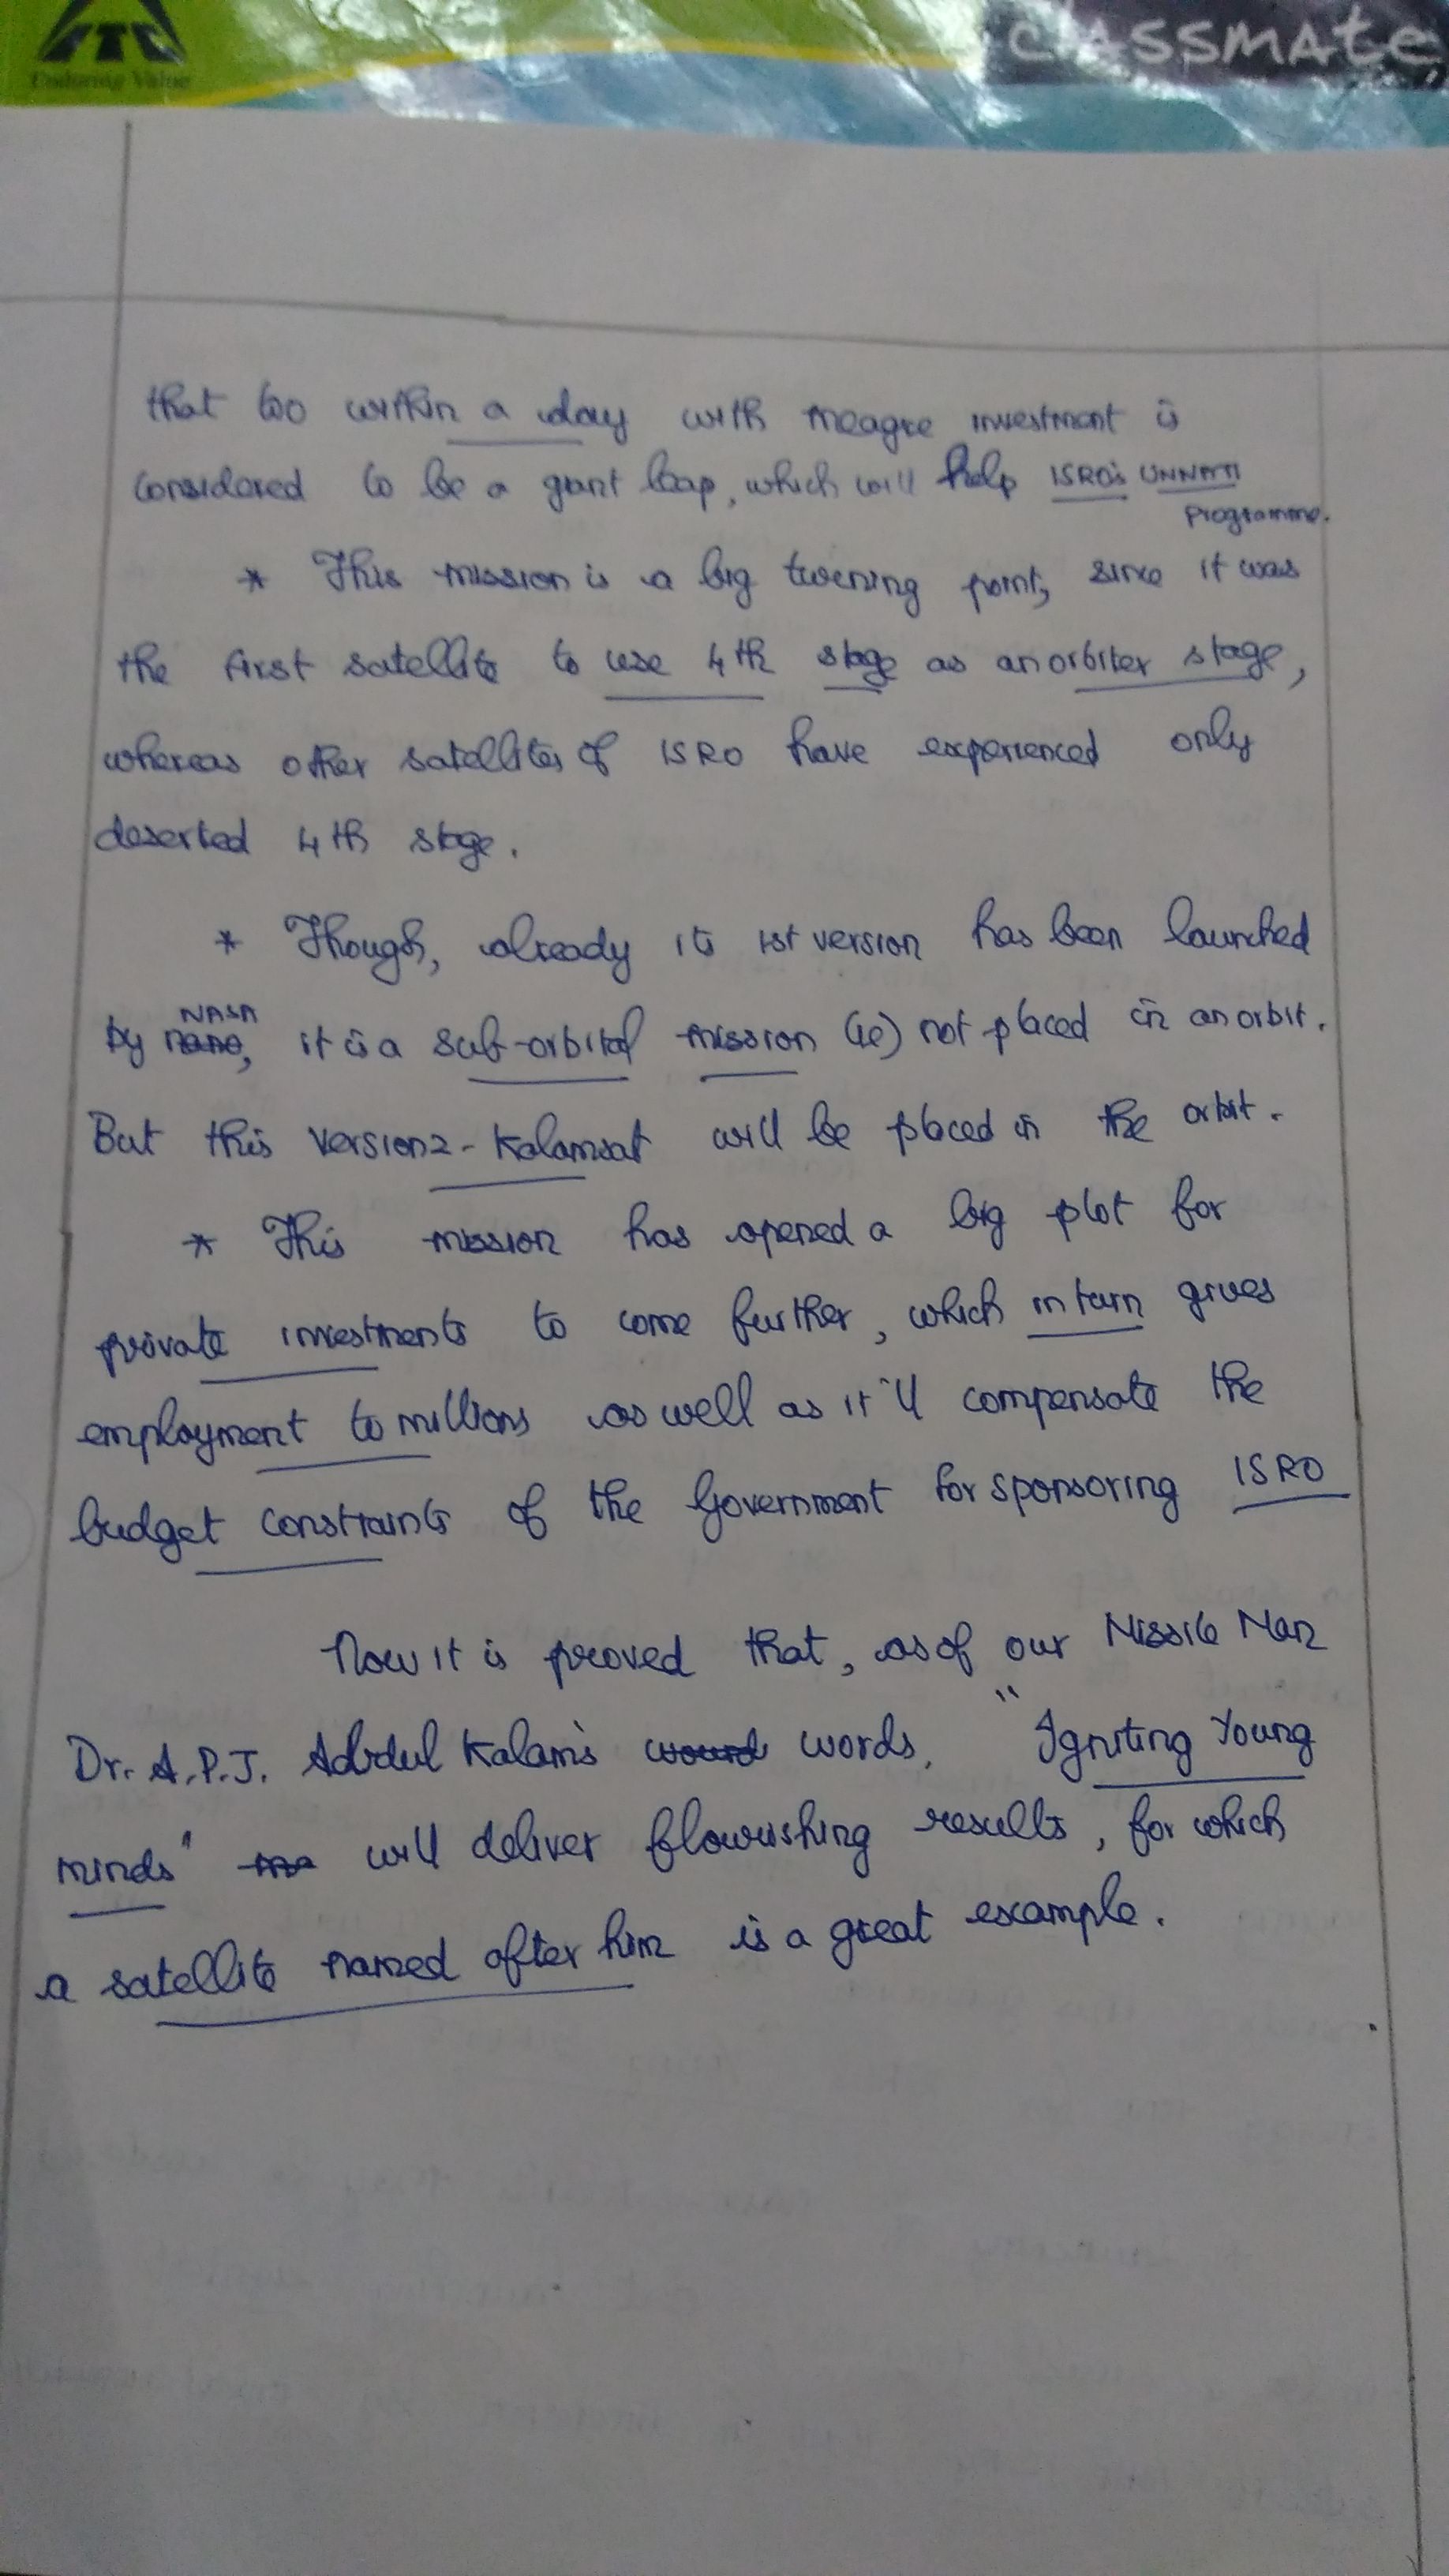 ITC
Enduring Value
classmate
that too within a day with meagre investment is
considered to be a giant leap, which will help ISRO's UNNATI
Programme.
* This mission is a big turning point, since it was
the first satellite to use 4th stage as an orbiter stage,
whereas other satellites of ISRO have experienced only
deserted 4th stage.
* Though, already its 1st version has been launched
by NASA, it is a sub-orbital mission (ie) not placed in an orbit.
But this version 2 - Kalamsat will be placed in the orbit.
* This mission has opened a big plot for
private investments to come further, which in turn gives
employment to millions as well as it'll compensate the
budget constraints of the Government for sponsoring ISRO
Now it is proved that, as of our Missile Man
Dr. A.P.J. Abdul Kalam's words, "Igniting Young
minds" will deliver flourishing results, for which
a satellite named after him is a great example.